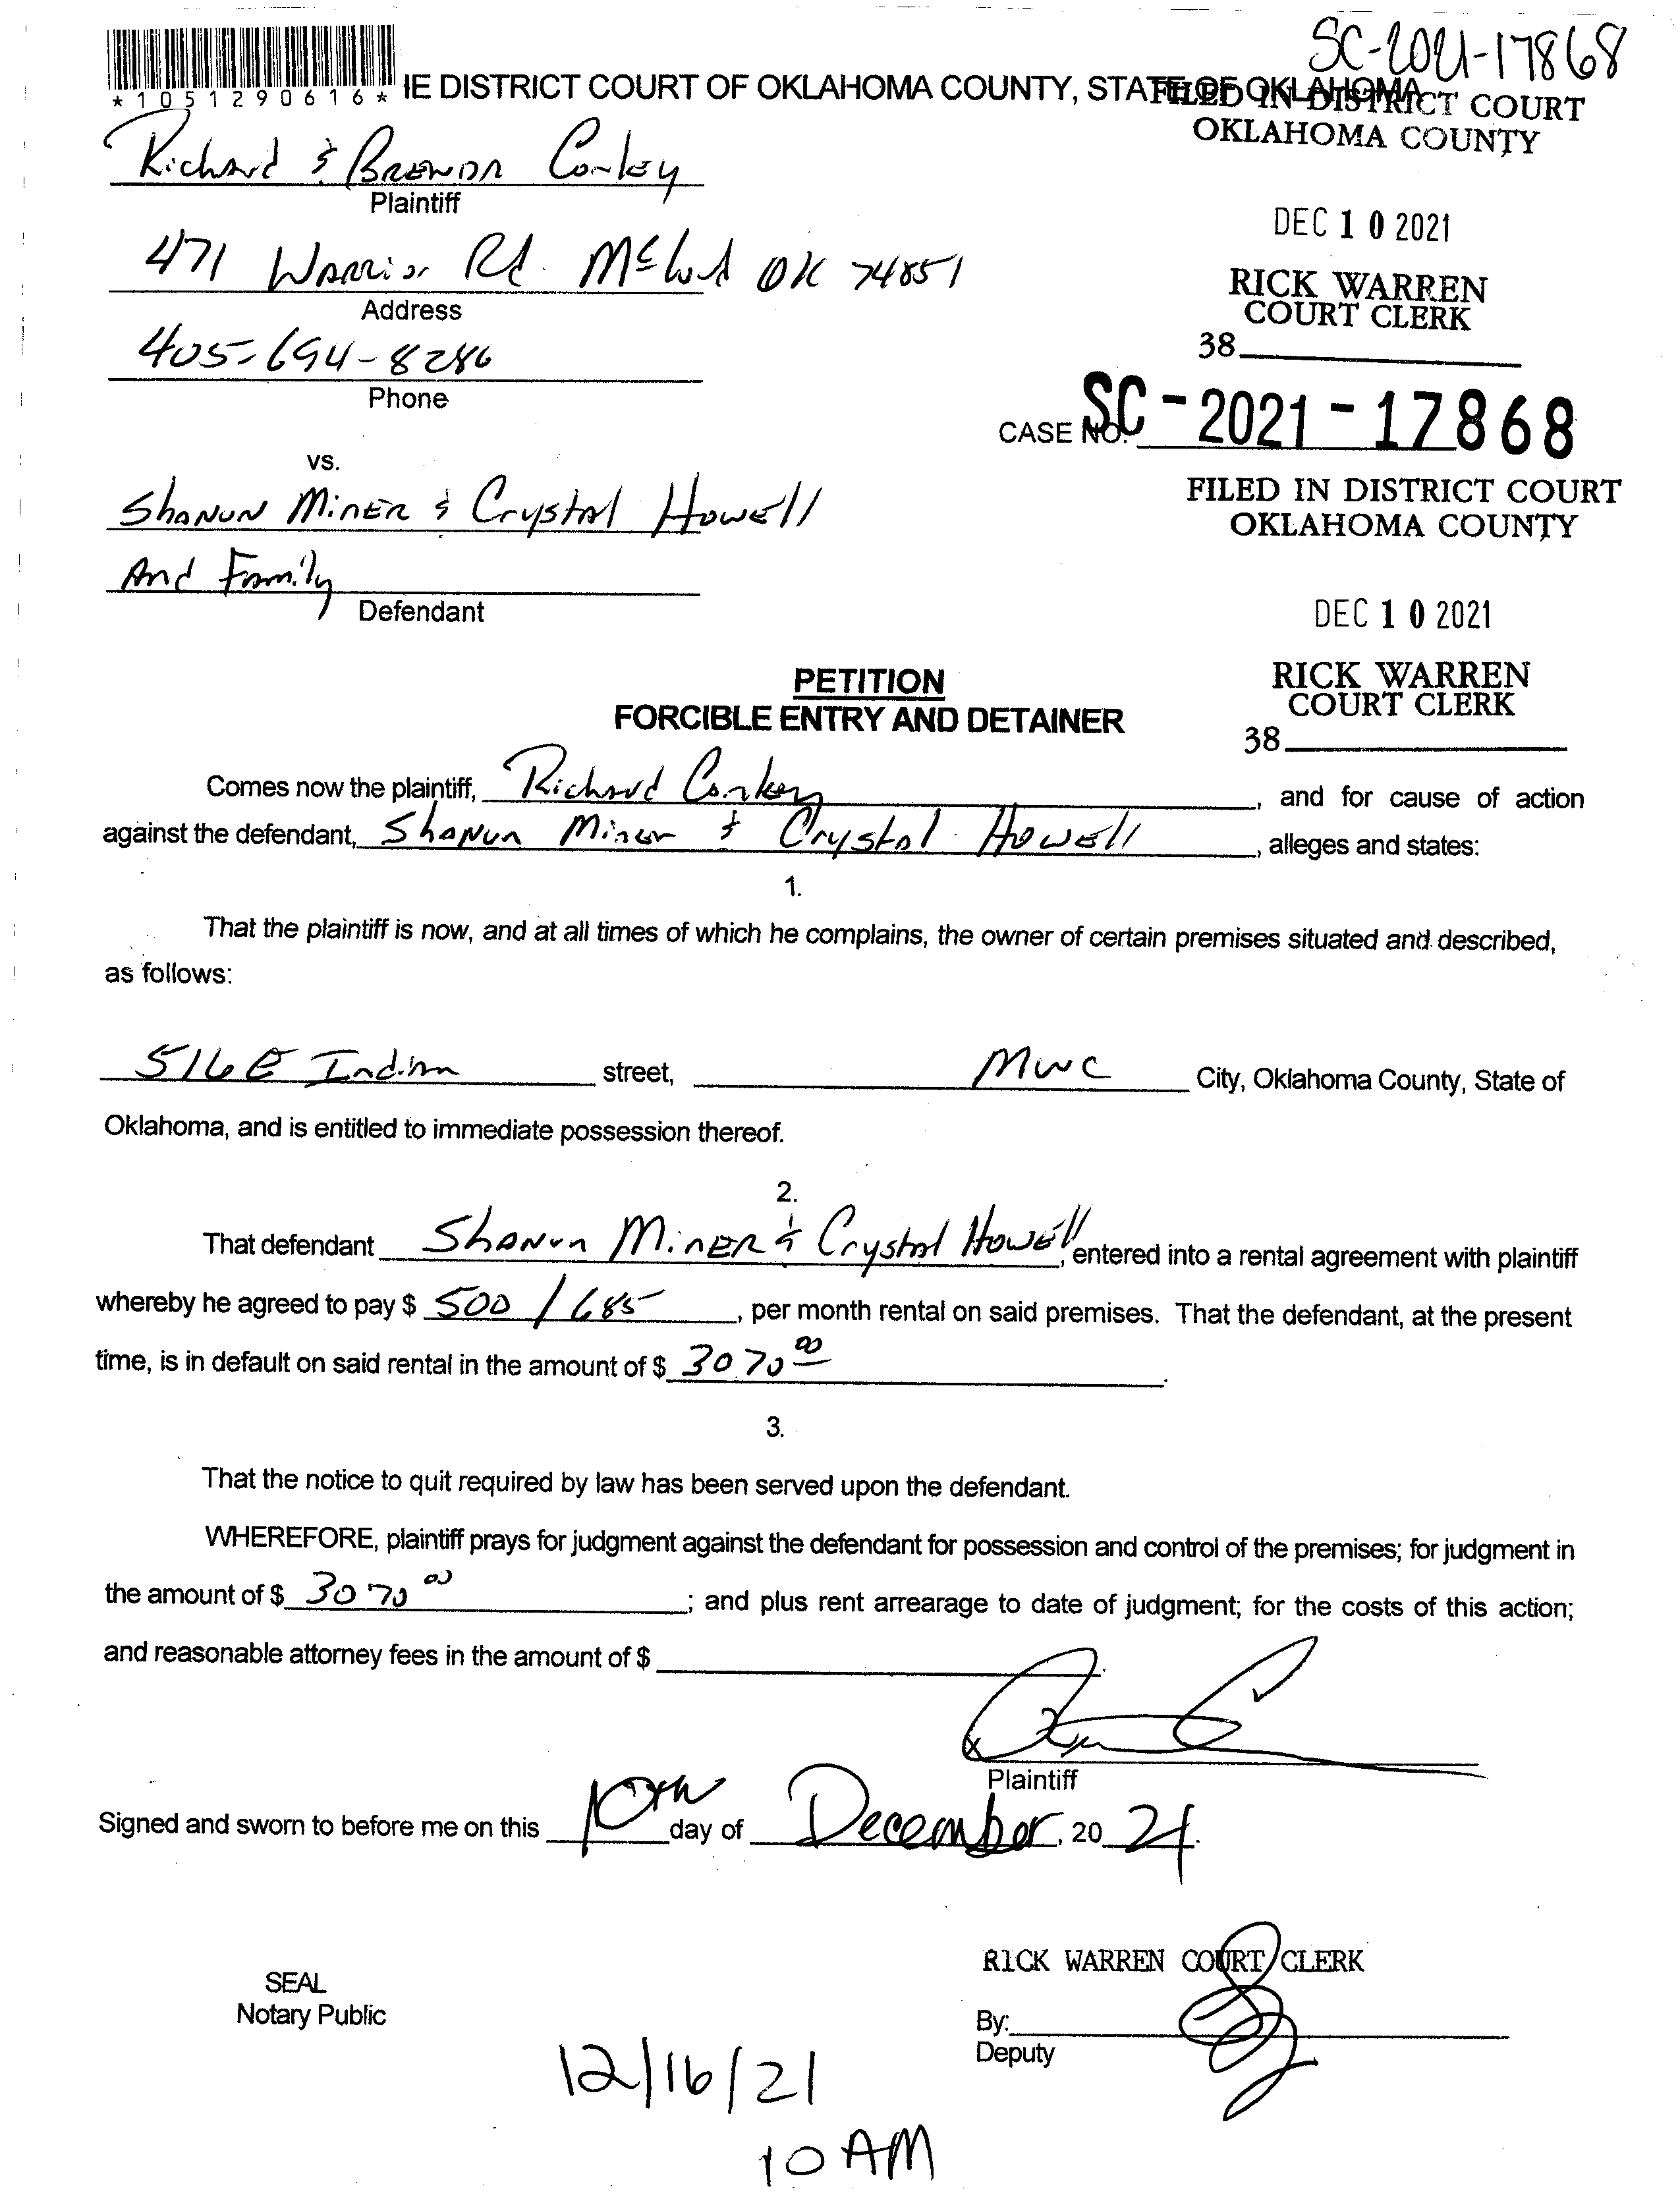 SC-2021-17868
*1051290616* IE DISTRICT COURT OF OKLAHOMA COUNTY, STATE OF OKLAHOMA
FILED IN DISTRICT COURT
OKLAHOMA COUNTY
Richard & Brenda Conkey
Plaintiff
DEC 10 2021
471 Warrior Rd. McLoud OK 74851
Address
RICK WARREN
COURT CLERK
38
405-694-8286
Phone
CASE NO. SC-2021-17868
vs.
FILED IN DISTRICT COURT
OKLAHOMA COUNTY
Shanun Miner & Crystal Howell
And Family
Defendant
DEC 10 2021
PETITION
FORCIBLE ENTRY AND DETAINER
RICK WARREN
COURT CLERK
38
Comes now the plaintiff, Richard Conkey, and for cause of action
against the defendant, Shanun Miner & Crystal Howell, alleges and states:
1.
That the plaintiff is now, and at all times of which he complains, the owner of certain premises situated and described,
as follows:
516 E Indian street, MWC City, Oklahoma County, State of
Oklahoma, and is entitled to immediate possession thereof.
2.
That defendant Shanun Miner & Crystal Howell, entered into a rental agreement with plaintiff
whereby he agreed to pay $ 500 / 685, per month rental on said premises. That the defendant, at the present
time, is in default on said rental in the amount of $ 3070 00.
3.
That the notice to quit required by law has been served upon the defendant.
WHEREFORE, plaintiff prays for judgment against the defendant for possession and control of the premises; for judgment in
the amount of $ 3070 00; and plus rent arrearage to date of judgment; for the costs of this action;
and reasonable attorney fees in the amount of $
x
Plaintiff
Signed and sworn to before me on this 10th day of December, 20 21.
RICK WARREN COURT CLERK
SEAL
Notary Public
By:
Deputy
12/16/21
10 AM